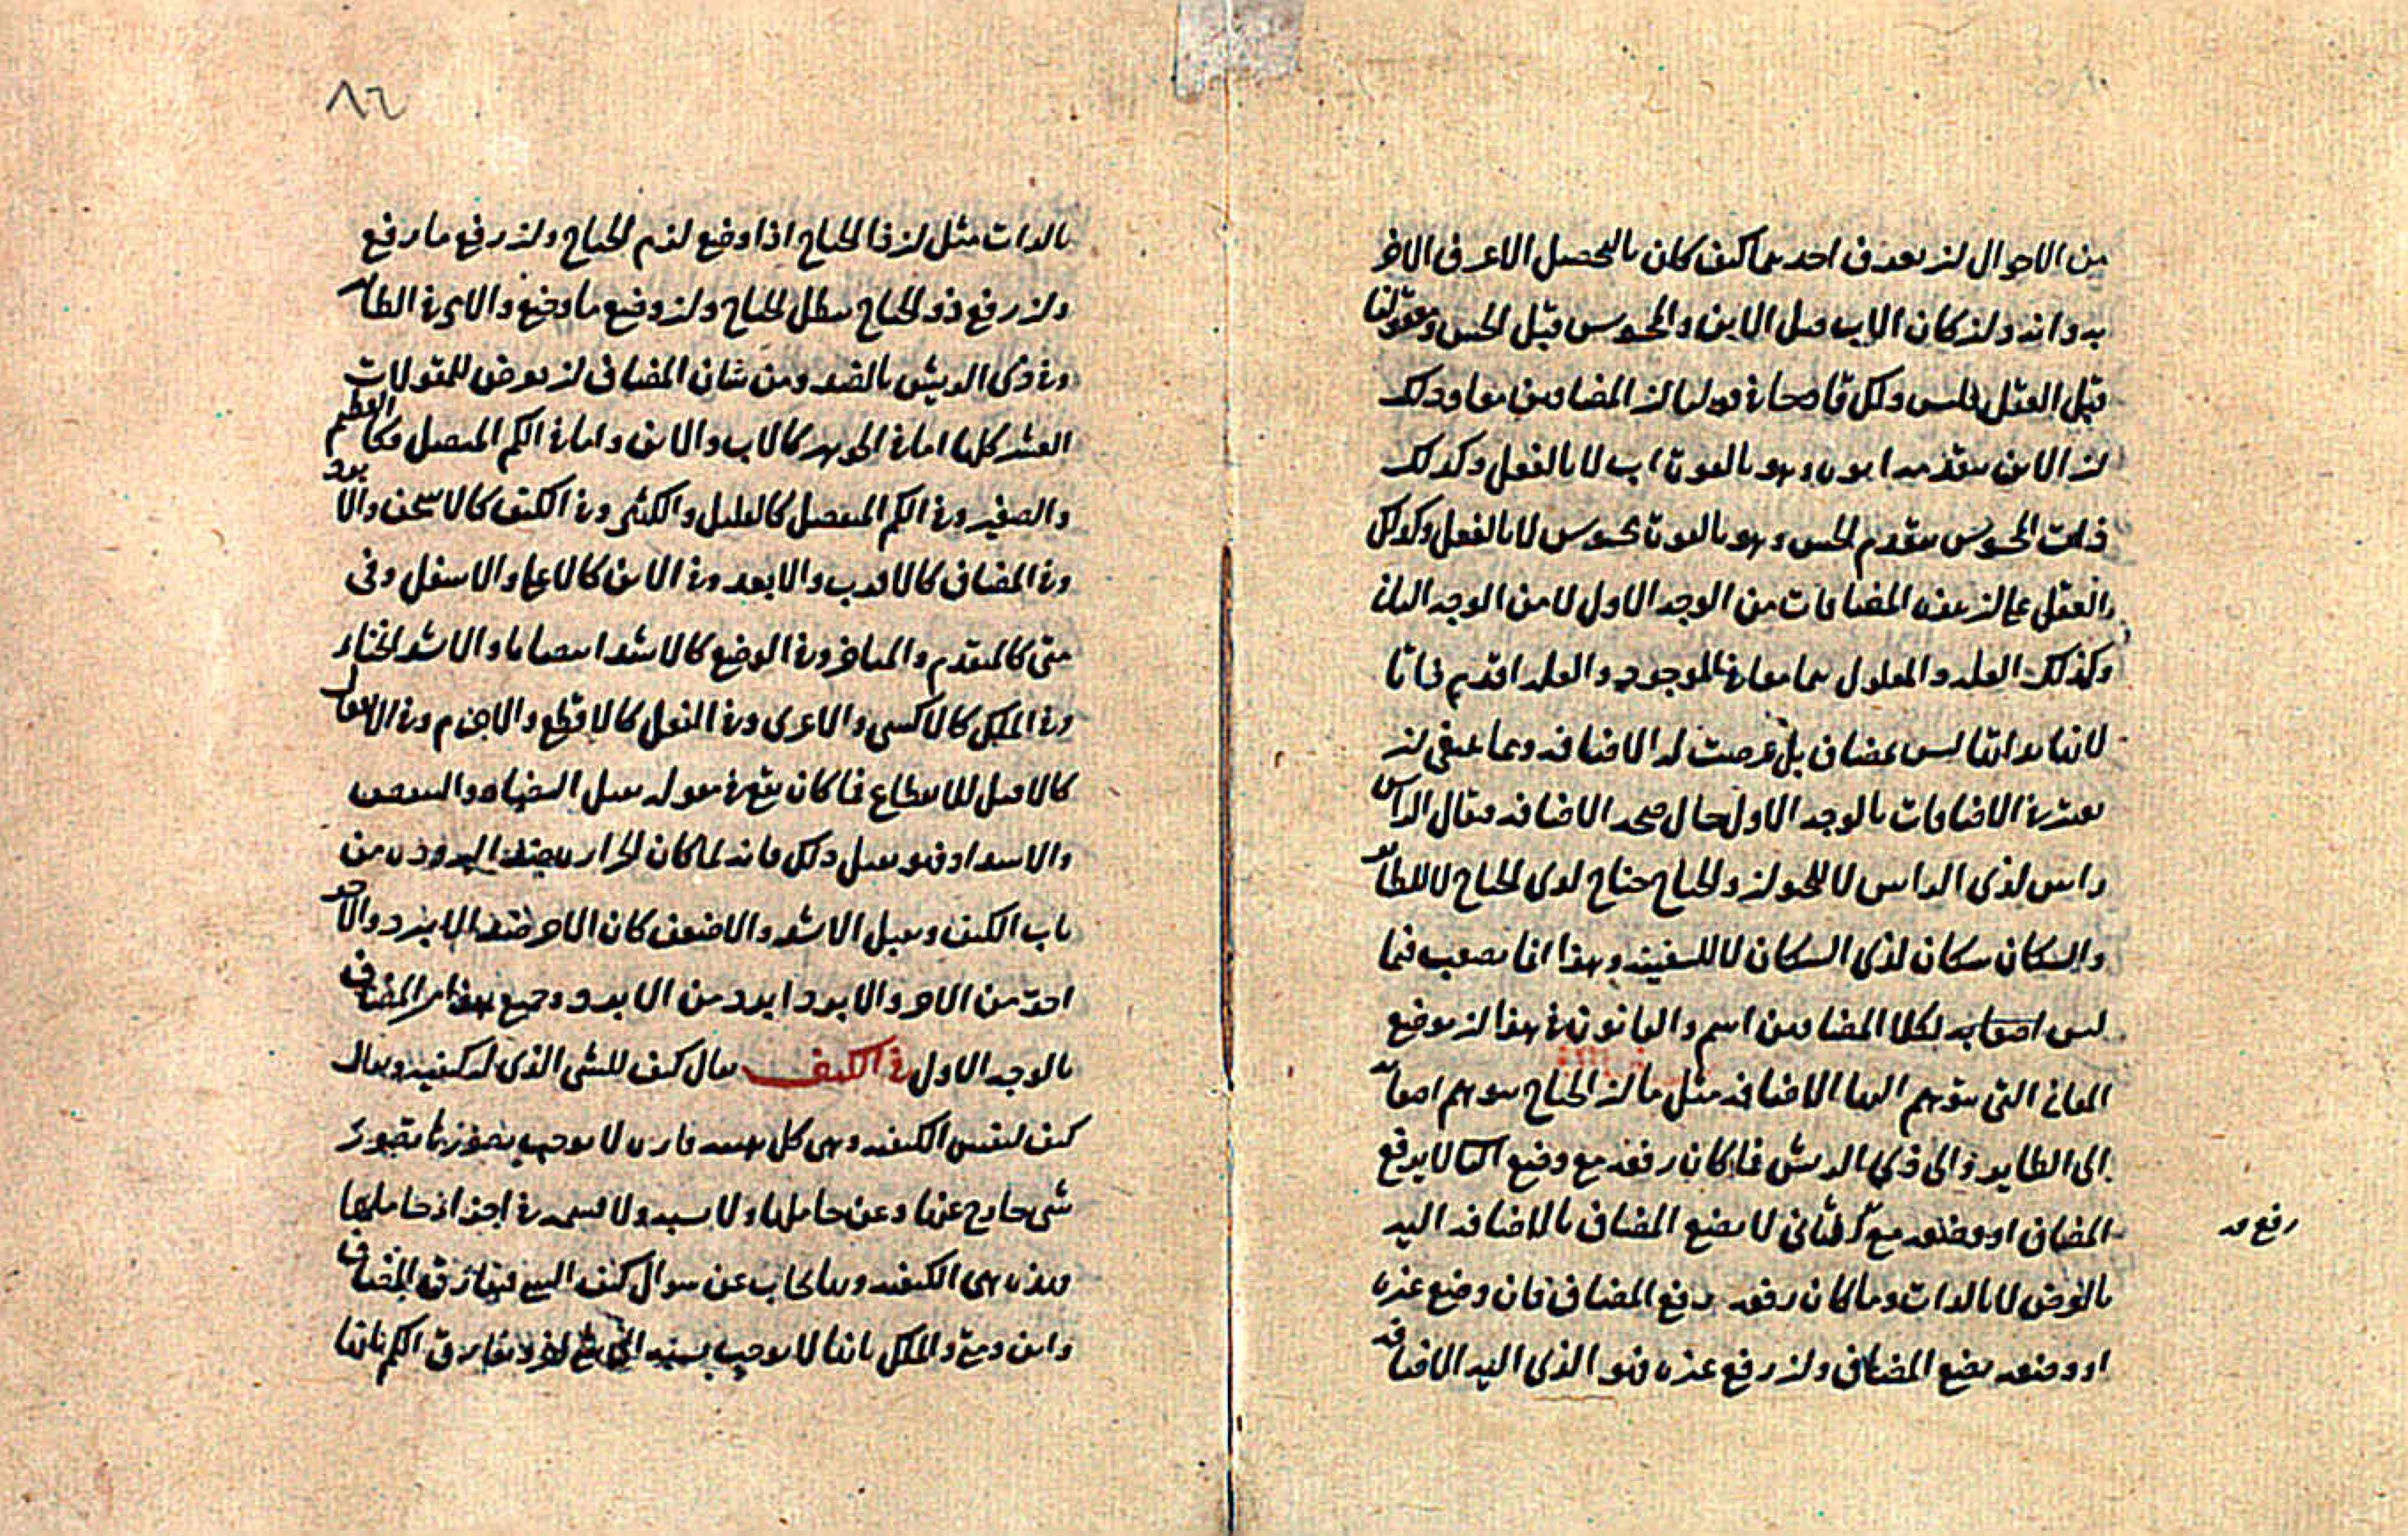 من الاحوال لن يعرف احدهما كيف كان بالتحصيل الا عرف الاخر
به وانه ولن كان الاب قبل الابن والمحسوس قبل الحس ومعقولنا
قبل العقل فليس ولكل قادحا في قولنا لن المضافين معا وذلك
لن الابن يتقدمه ابوه وهو بالقوة اب لا بالفعل وكذلك
ذات المحسوس يتقدم الحس وهو بالقوة محسوس لا بالفعل وكذلك
والعقل على لن هذه المضافات من الوجه الاول لا من الوجه الثاني
وكذلك العلة والمعلول هما معا في الوجود والعلة اقدم ذاتا
لانها بذاتها ليس بمضاف بل عرضت له الاضافة ومما ينبغي لن
يعتبر في الاضافات بالوجه الاول حال صحة الاضافة فيقال الراس
راس لذي الراس لا للحيوان والجناح جناح لذي الجناح لا للطاير
والسكان سكان لذي السكان لا للسفينة وهذا انما يصعب فيما
ليس لكلا المضافين اسم والقانون في هذا لن يوضع
المعاني التي يتوهم اليها الاضافة مثل ما لن الجناح يتوهم اضافته
الى الطاير والى ذي الريش فما كان رفعه مع وضع الثاني لا يرفع
المضاف او وضعه مع الثاني لا يضع المضاف بالاضافة اليه
رفع
بالعرض لا بالذات وما كان رفعه يرفع المضاف فان وضع غيره
او وضعه يضع المضاف ولن رفع غيره فهو الذي اليه الاضافة
٨٦
بالذات مثل لن ذا الجناح اذا وضع لزم الجناح ولن رفع ما رفع
ولن رفع ذو الجناح بطل الجناح ولن وضع ما وضع والامر في الطاير
وفي ذي الريش بالضد ومن شان المضاف لن يعرض للمقولات
العشر كلها اما في الجوهر كالاب والابن واما في الكم المتصل فكالعظيم
والصغير وفي الكم المنفصل كالقليل والكثير وفي الكيف كالاسخن والابرد
وفي المضاف كالاقرب والابعد وفي الاين كالاعلى والاسفل وفي
متى كالمتقدم والمتاخر وفي الوضع كالاشد انتصابا والاشد انحناء
وفي الملك كالاكسى والاعرى وفي الفعل كالاقطع والاجزم وفي الانفعال
كالاقبل للانقطاع فما كان يقع في مقوله يقبل التضاد والتنقص
والاشتداد فهو يقبل ذلك فانه لما كان الحرارة ضد البرودة من
باب الكيف ويقبل الاشد والاضعف كان الاحر ضد الابرد والاحر
احر من الاحر والابرد ابرد من الابرد وجميع هذا من المضاف
بالوجه الاول في الكيف يقال كيف للشى الذى له كيفيه ويقال
كيف لنفس الكيفيه وهى كل هيئه قاره لا يوجب تصورها تصور
شى خارج عنها وعن حاملها ولا نسبه ولا قسمه في اجزاء حاملها
فهذه هى الكيفيه وبها يجاب عن سوال كيف الشى فيفارق المضاف
واين ومتى والملك بانها لا يوجب نسبه الى ويفارق الكم بانها